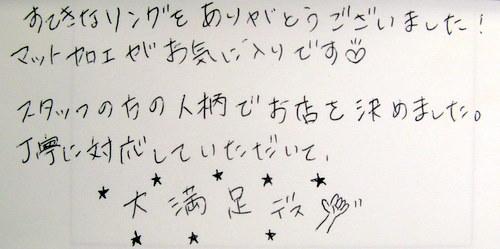 すてきなリングをありがとうございました!
マット加工がお気に入りです♡
スタッフの方の人柄でお店を決めました。
丁寧に対応していただいて、
大満足デス